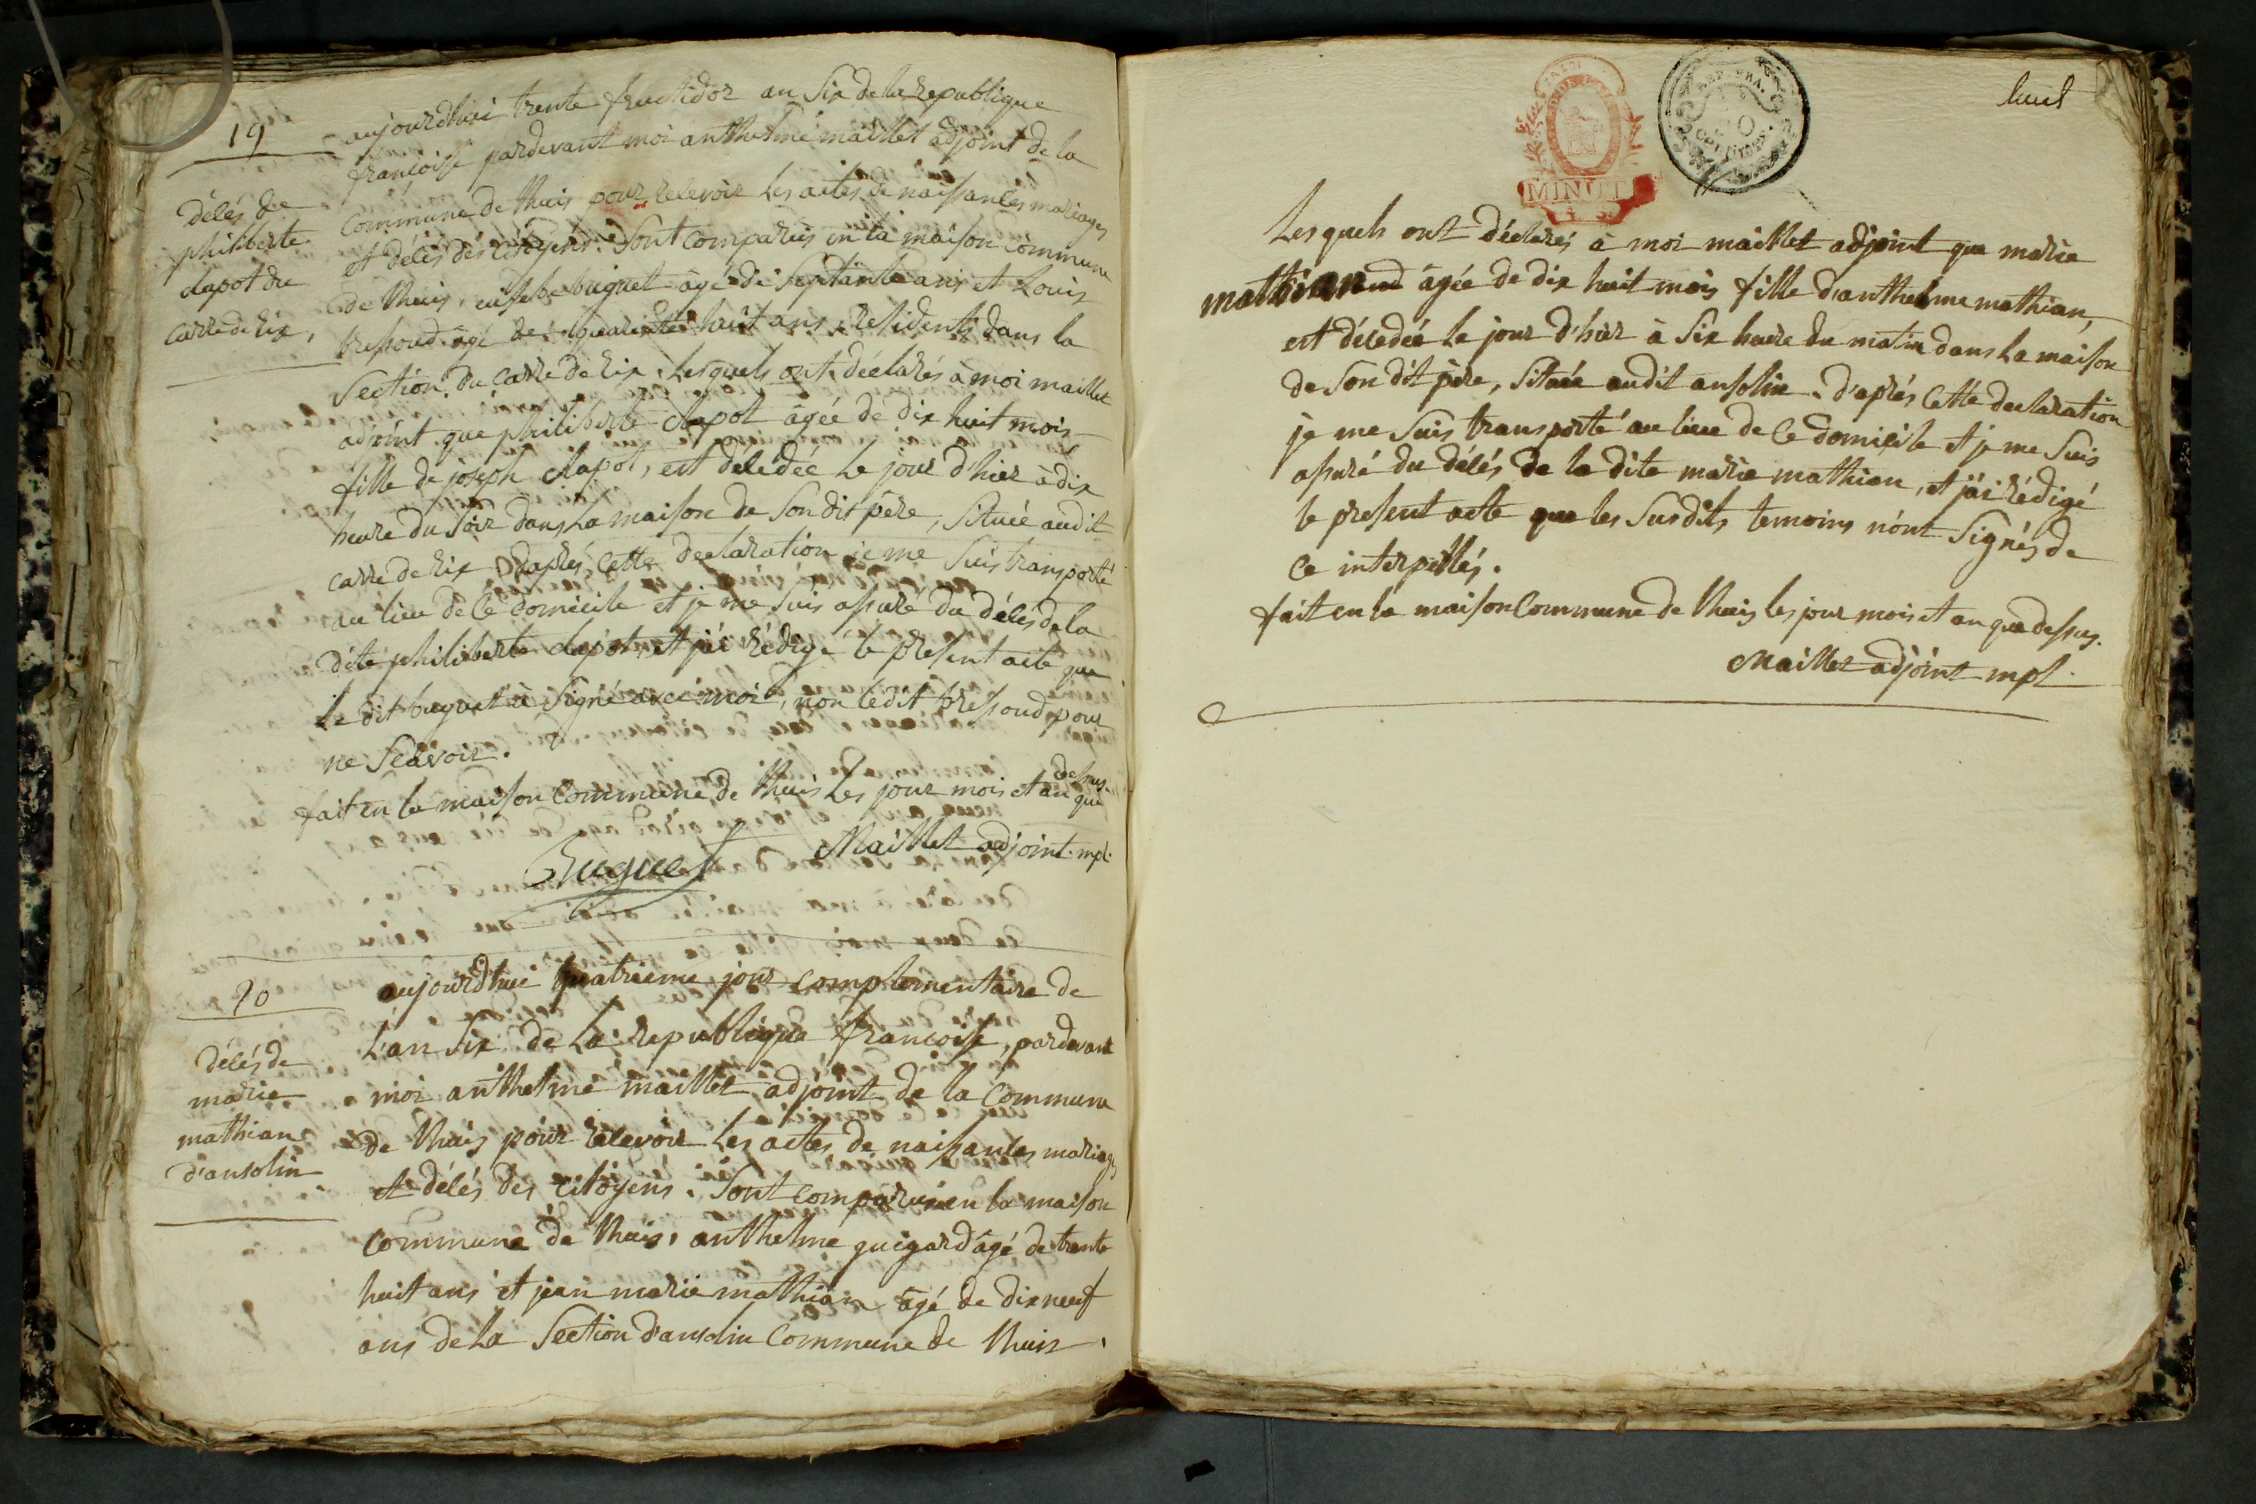 19
décés de
philiberte
clapot du
carre de rix,
aujourdhui trente fructidor an six de la republique
françoise pardevant moi anthelme maillet adjoint de la
commune de thuis pour recevoir les actes de naissances mariages
et décés des citoyens. Sont comparus en la maison commune
de thuis, eusebe buguet âgé de septante ans et Louis
tressoud âgé de quarante huit ans, residents dans la
Section du carre de rix. Lesquels ont déclarés à moi maillet
adjoint que philiberte clapot âgée de dix huit mois
fille de joseph clapot, est décédée le jour d'hier à dix
heure du soir dans la maison de son dit père, située audit
carre de rix. D'après cette declaration je me suis transporté
au lieu de ce domicile et je me suis assuré du décés de la
dite philiberte clapot, et j'ai rédigé le present acte que
le dit buguet à signé avec moi, non ledit tressoud pour
ne sçavoir.
fait en la maison commune de thuis les jour mois et an que
dessus.
Buguet Maillet adjoint mpl.
20
décés de
marie
mathian
d'ansolin
aujourdhui quatrieme jour complementaire de
l'an six de la republique francoise, pardevant
moi anthelme maillet adjoint de la commune
de thuis pour recevoir les actes de naissances mariages
et décés des citoyens. Sont comparus en la maison
commune de thuis, anthelme guigard âgé de trente
huit ans et jean marie mathian âgé de dix neuf
ans de la Section d'ansolin commune de thuis.
huit
MINUT
Lesquels ont déclarés à moi maillet adjoint que marie
mathian âgée de dix huit mois fille d'anthelme mathian,
est décédée le jour d'hier à six heure du matin dans la maison
de son dit père, située audit ansolin. d'après cette declaration
je me suis transporté au lieu de ce domicile et je me suis
assuré du décés de la dite marie mathian, et j'ai rédigé
le present acte que les susdits temoins n'ont signés de
ce interpellés.
fait en la maison commune de thuis les jour mois et an que dessus.
Maillet adjoint mpl.